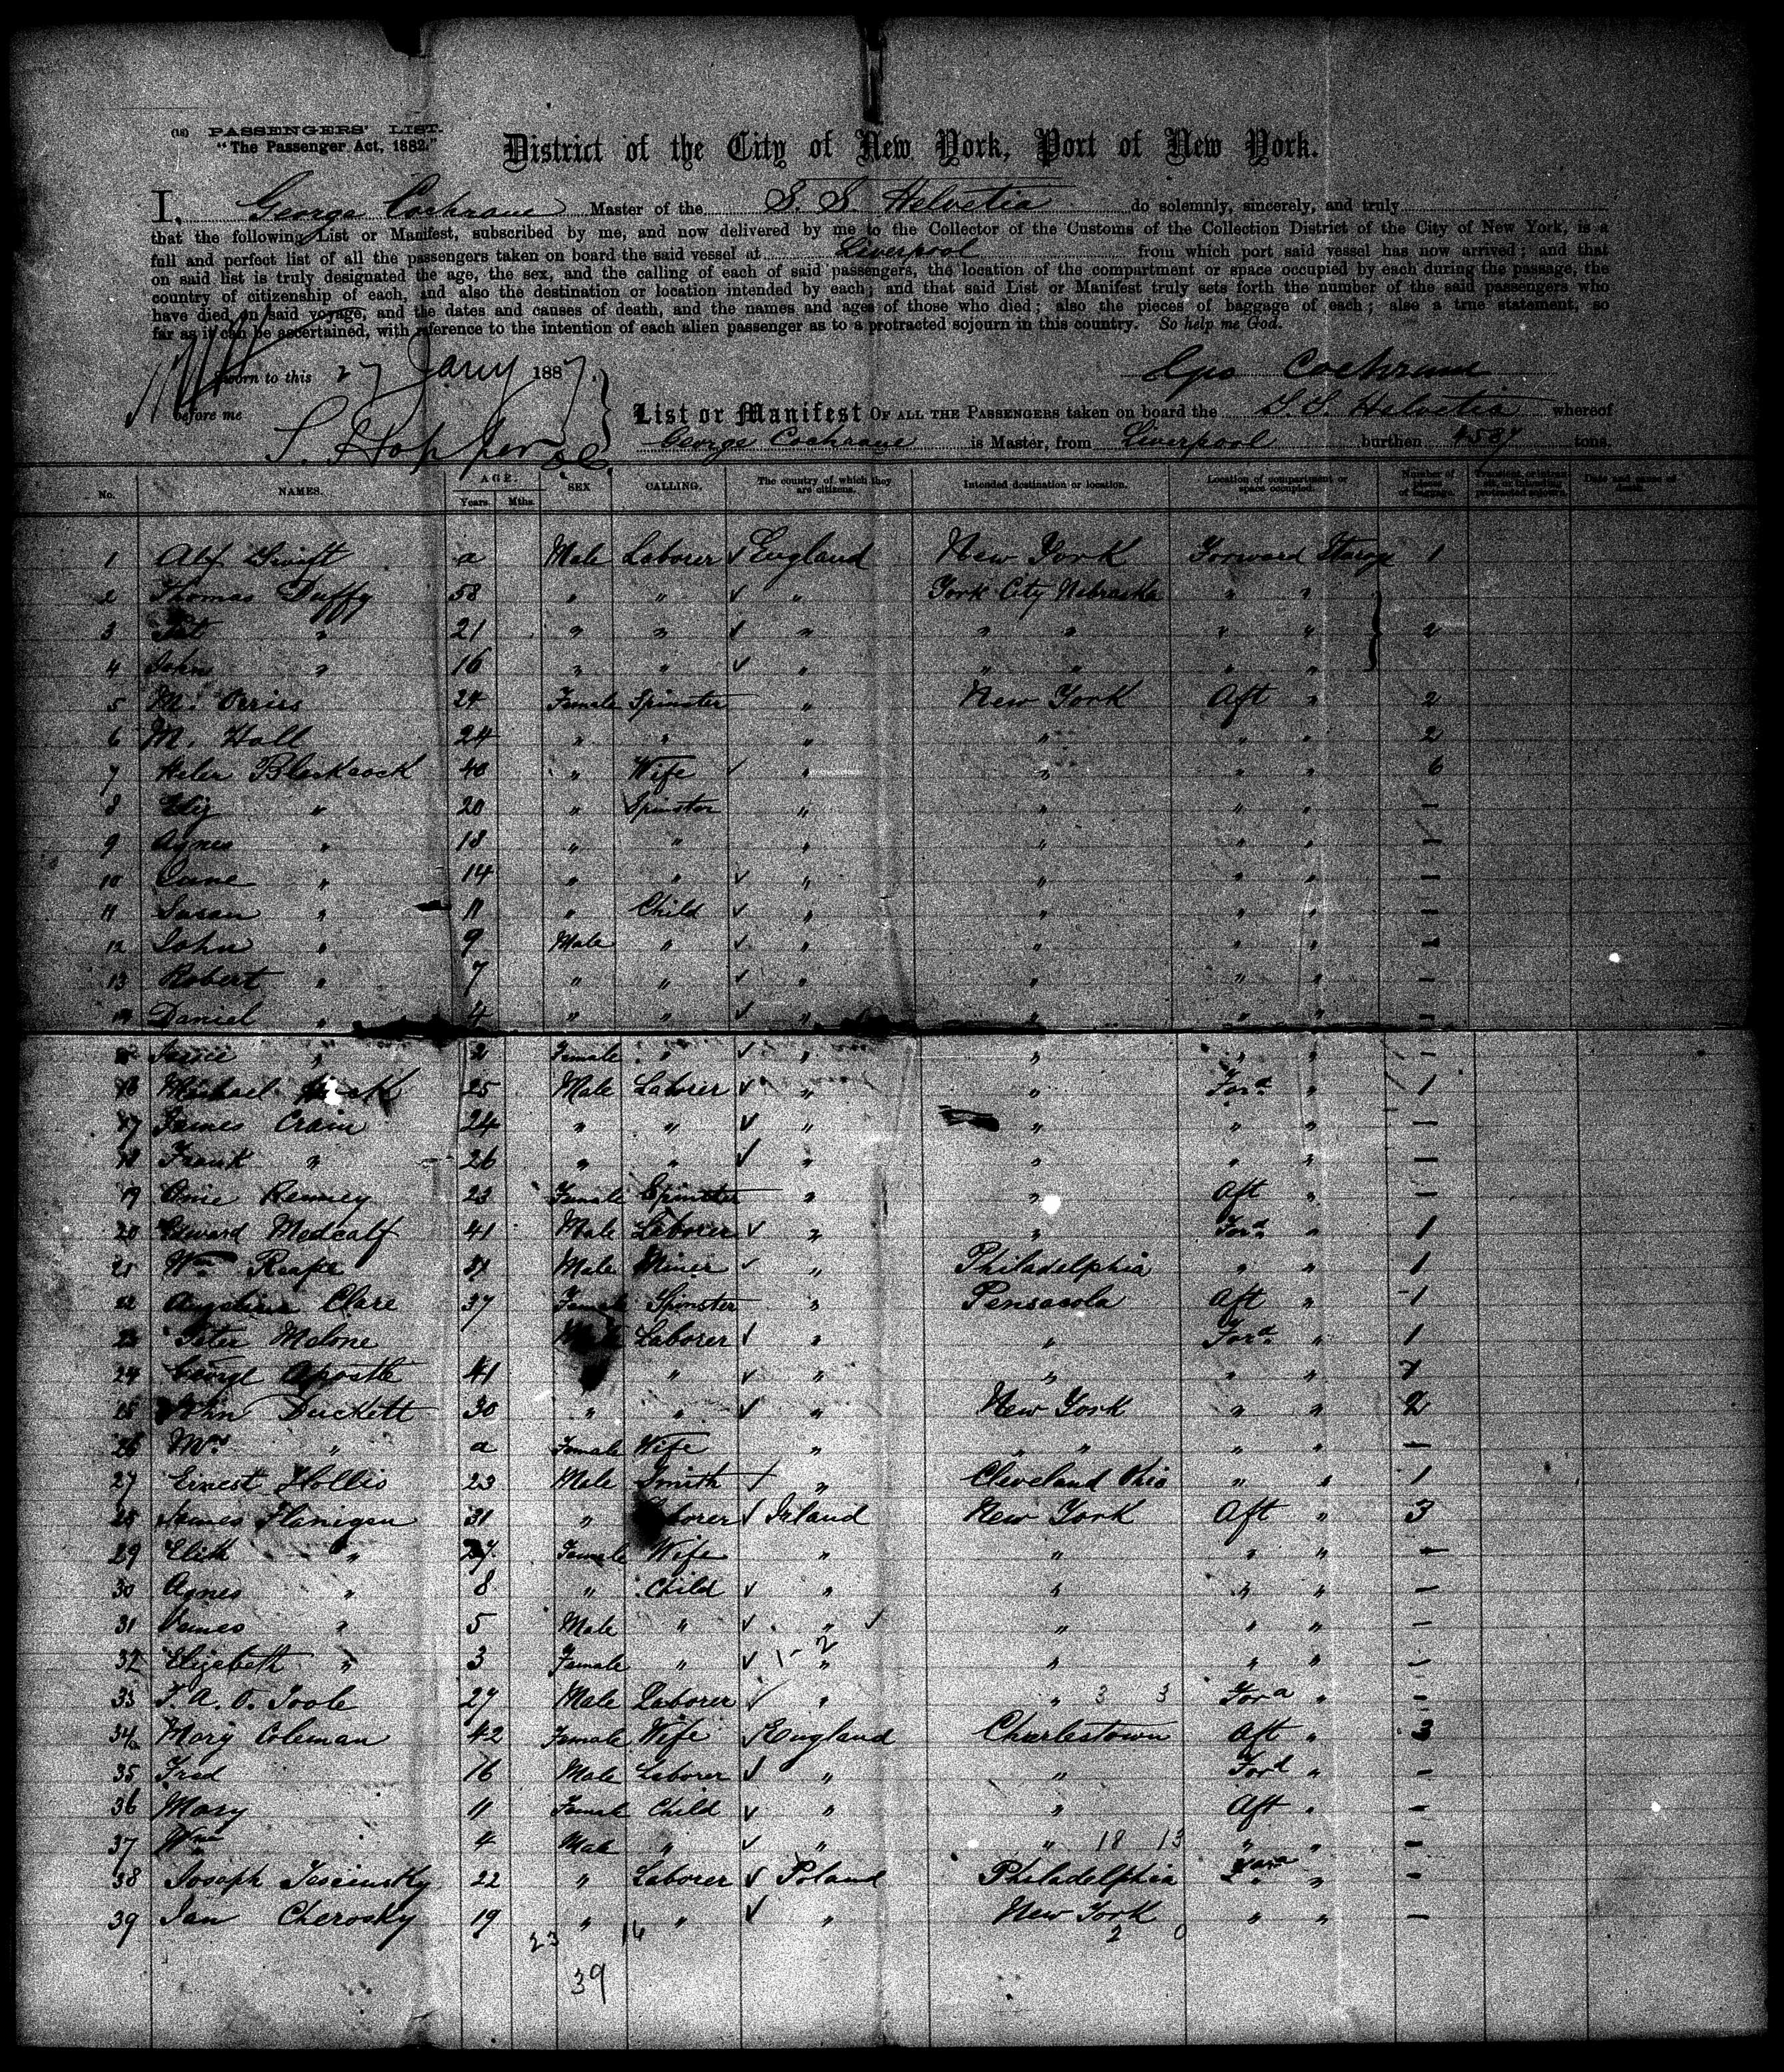 (18) PASSENGERS' LIST.
"The Passenger Act, 1882."
District of the City of New York, Port of New York.
I, George Cochrane Master of the S. S. Helvetia do solemnly, sincerely, and truly
that the following List or Manifest, subscribed by me, and now delivered by me to the Collector of the Customs of the Collection District of the City of New York, is a
full and perfect list of all the passengers taken on board the said vessel at Liverpool from which port said vessel has now arrived; and that
on said list is truly designated the age, the sex, and the calling of each of said passengers, the location of the compartment or space occupied by each during the passage, the
country of citizenship of each, and also the destination or location intended by each; and that said List or Manifest truly sets forth the number of the said passengers who
have died on said voyage, and the dates and causes of death, and the names and ages of those who died; also the pieces of baggage of each; also a true statement, so
far as it can be ascertained, with reference to the intention of each alien passenger as to a protracted sojourn in this country. So help me God.
Sworn to this 27 Jany 1887
Geo Cochrane
before me
S. Hopper
List or Manifest OF ALL THE PASSENGERS taken on board the S.S. Helvetia whereof
George Cochrane is Master, from Liverpool burthen 4587 tons.
No. NAMES. AGE. Years. Mths. SEX CALLING. The country of which they are citizens. Intended destination or location. Location of compartment or space occupied. Number of pieces of baggage. Transient, or in transit, or intending protracted sojourn. Date and cause of death.
1 Alf Swift a Male Laborer ✓ England New York Forward Starage 1
2 Thomas Duffy 58 " " ✓ " York City Nebraska " "
3 Pat " 21 " " ✓ " " " " " 2
4 John " 16 " " ✓ " " " " "
5 M. Orriss 24 Female Spinster " New York Aft " 2
6 M. Hall 24 " " " " " " 2
7 Helen Blackcock 40 " Wife ✓ " " " " 6
8 Eliz " 20 " Spinster " " " " —
9 Agnes " 18 " " " " " " —
10 Jane " 14 " " ✓ " " " " —
11 Susan " 11 " Child ✓ " " " " —
12 John " 9 Male " ✓ " " " " —
13 Robert " 7 " " ✓ " " " " —
14 Daniel " 4 " " ✓ " " " " —
15 Jessie " 2 Female " ✓ " " " " —
16 Michael 25 Male Laborer ✓ " " Ford " 1
17 James Crain 24 " " ✓ " " " " —
18 Frank " 26 " " ✓ " " " " —
19 Anie Renney 23 Female Spinster " " Aft " —
20 Edward Medcalf 41 Male Laborer ✓ " " Ford " 1
21 Wm Male Miner ✓ " Philadelphia " " 1
22 Angelina Clare 37 Female Spinster " Pensacola Aft " 1
23 Peter Malone Laborer ✓ " " Ford " 1
24 George Apostle 41 " ✓ " " " "
25 John Duckett 30 " " ✓ " New York " " 2
26 Mrs " a Female Wife " " " " " —
27 Ernest Hollis 23 Male Smith ✓ " Cleveland Ohio " " 1
28 James Flanigan 31 " Laborer ✓ Irland New York Aft " 3
29 " 27 Female Wife " " " " —
30 Agnes " 8 " Child ✓ " " " " —
31 James " 5 Male " ✓ " ✓ " " " —
32 Elizabeth " 3 Female " ✓ 2 " " " " —
33 T. A. O. Toole 27 Male Laborer ✓ " " 3 3 Ford " —
34 Mary Coleman 42 Female Wife ✓ England Charlestown Aft " 3
35 Fred 16 Male Laborer ✓ " " Ford " —
36 Mary 11 Female Child ✓ " " Aft " —
37 Wm 4 Male " ✓ " " 18 13 " " —
38 Joseph 22 " Laborer ✓ Poland Philadelphia Ford " —
39 Jan Cherosky 19 " " ✓ " New York " " —
23 14 2 0
39